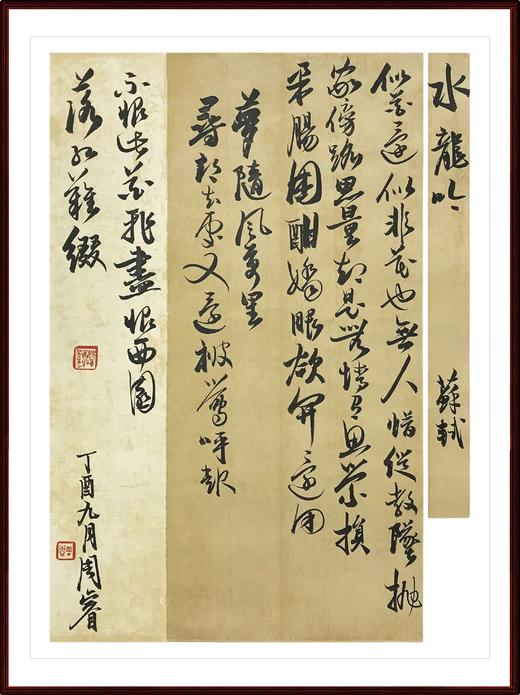 水龍吟 蘇軾
似花還似非花也無人惜從教墜拋
家傍路思量却是無情有思縈損
柔腸困酣嬌眼欲開還閉
夢隨風萬里
尋郎去處又還被鶯呼起
不恨此花飛盡恨西園
落紅難綴
丁酉九月周睿